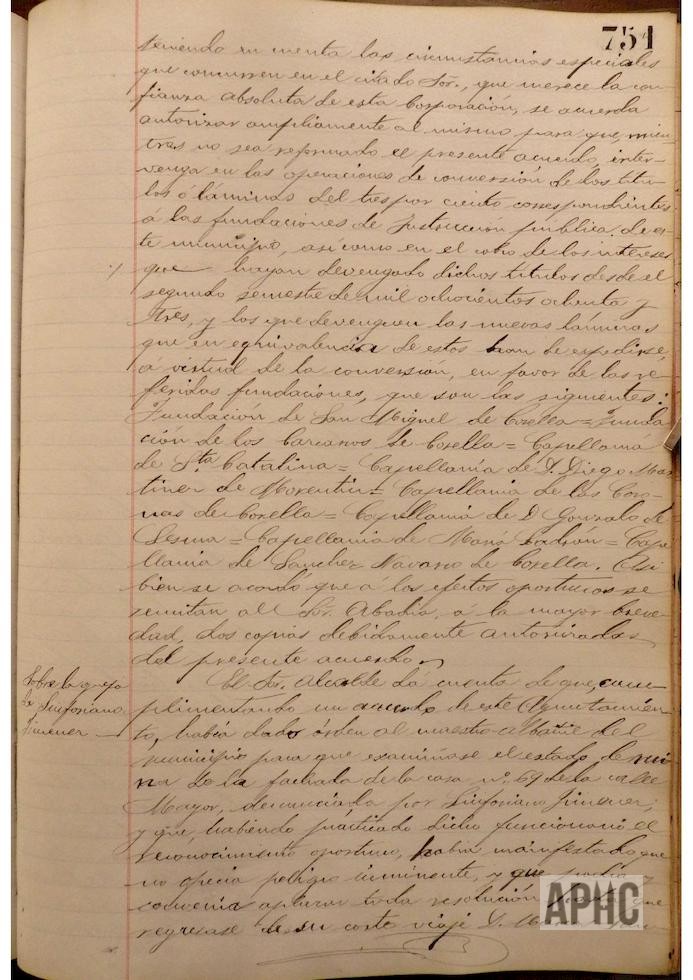 751
teniendo en cuenta las circunstancias especiales
que concurren en el citado Sor., que merece la con-
fianza absoluta de esta Corporación, se acuerda
autorizar ampliamente al mismo para que, mien-
tras no sea reformado el presente acuerdo, inter-
venga en las operaciones de conversión de los títu-
los ó láminas del tres por ciento correspondientes
á las fundaciones de Instrucción pública de es-
te municipio, así como en el cobro de los intereses
que hayan devengado dichos títulos desde el
segundo semestre de mil ochocientos ochenta y
tres, y los que devenguen las nuevas láminas
que en equivalencia de estos han de expedirse,
á virtud de la conversión, en favor de las re-
feridas fundaciones, que son las siguientes:
Fundación de San Miguel de Corella = Funda-
ción de los Carcanos de Corella = Capellanía
de Sta Catalina = Capellanía de D. Diego Mar-
tinez de Morentin = Capellanía de las Coro-
nas de Corella = Capellanía de D Gonzalo de
Sesma = Capellanía de María Ladron = Cape-
llanía de Sanchez Navarro de Corella. Asi
bien se acordó que á los efectos oportunos se
remitan all Sor. Abadía, á la mayor breve-
dad, dos copias debidamente autorizadas
del presente acuerdo.
Sobre la queja
de Sinforiano
Jimenez
El Sr. Alcalde dá cuenta de que, cum-
plimentando un acuerdo de este Ayuntamien-
to, había dado órden al maestro Albañil del
municipio para que examinase el estado de rui-
na de la fachada de la casa nº. 69 de la calle
Mayor, denunciada por Sinforiano Jimenez;
y que, habiendo practicado dicho funcionario el
reconocimiento oportuno, había manifestado que
no ofrecía peligro inminente, y que podía y
convenía aplazar toda resolución hasta que
regresase de su corto viaje D.
APHC